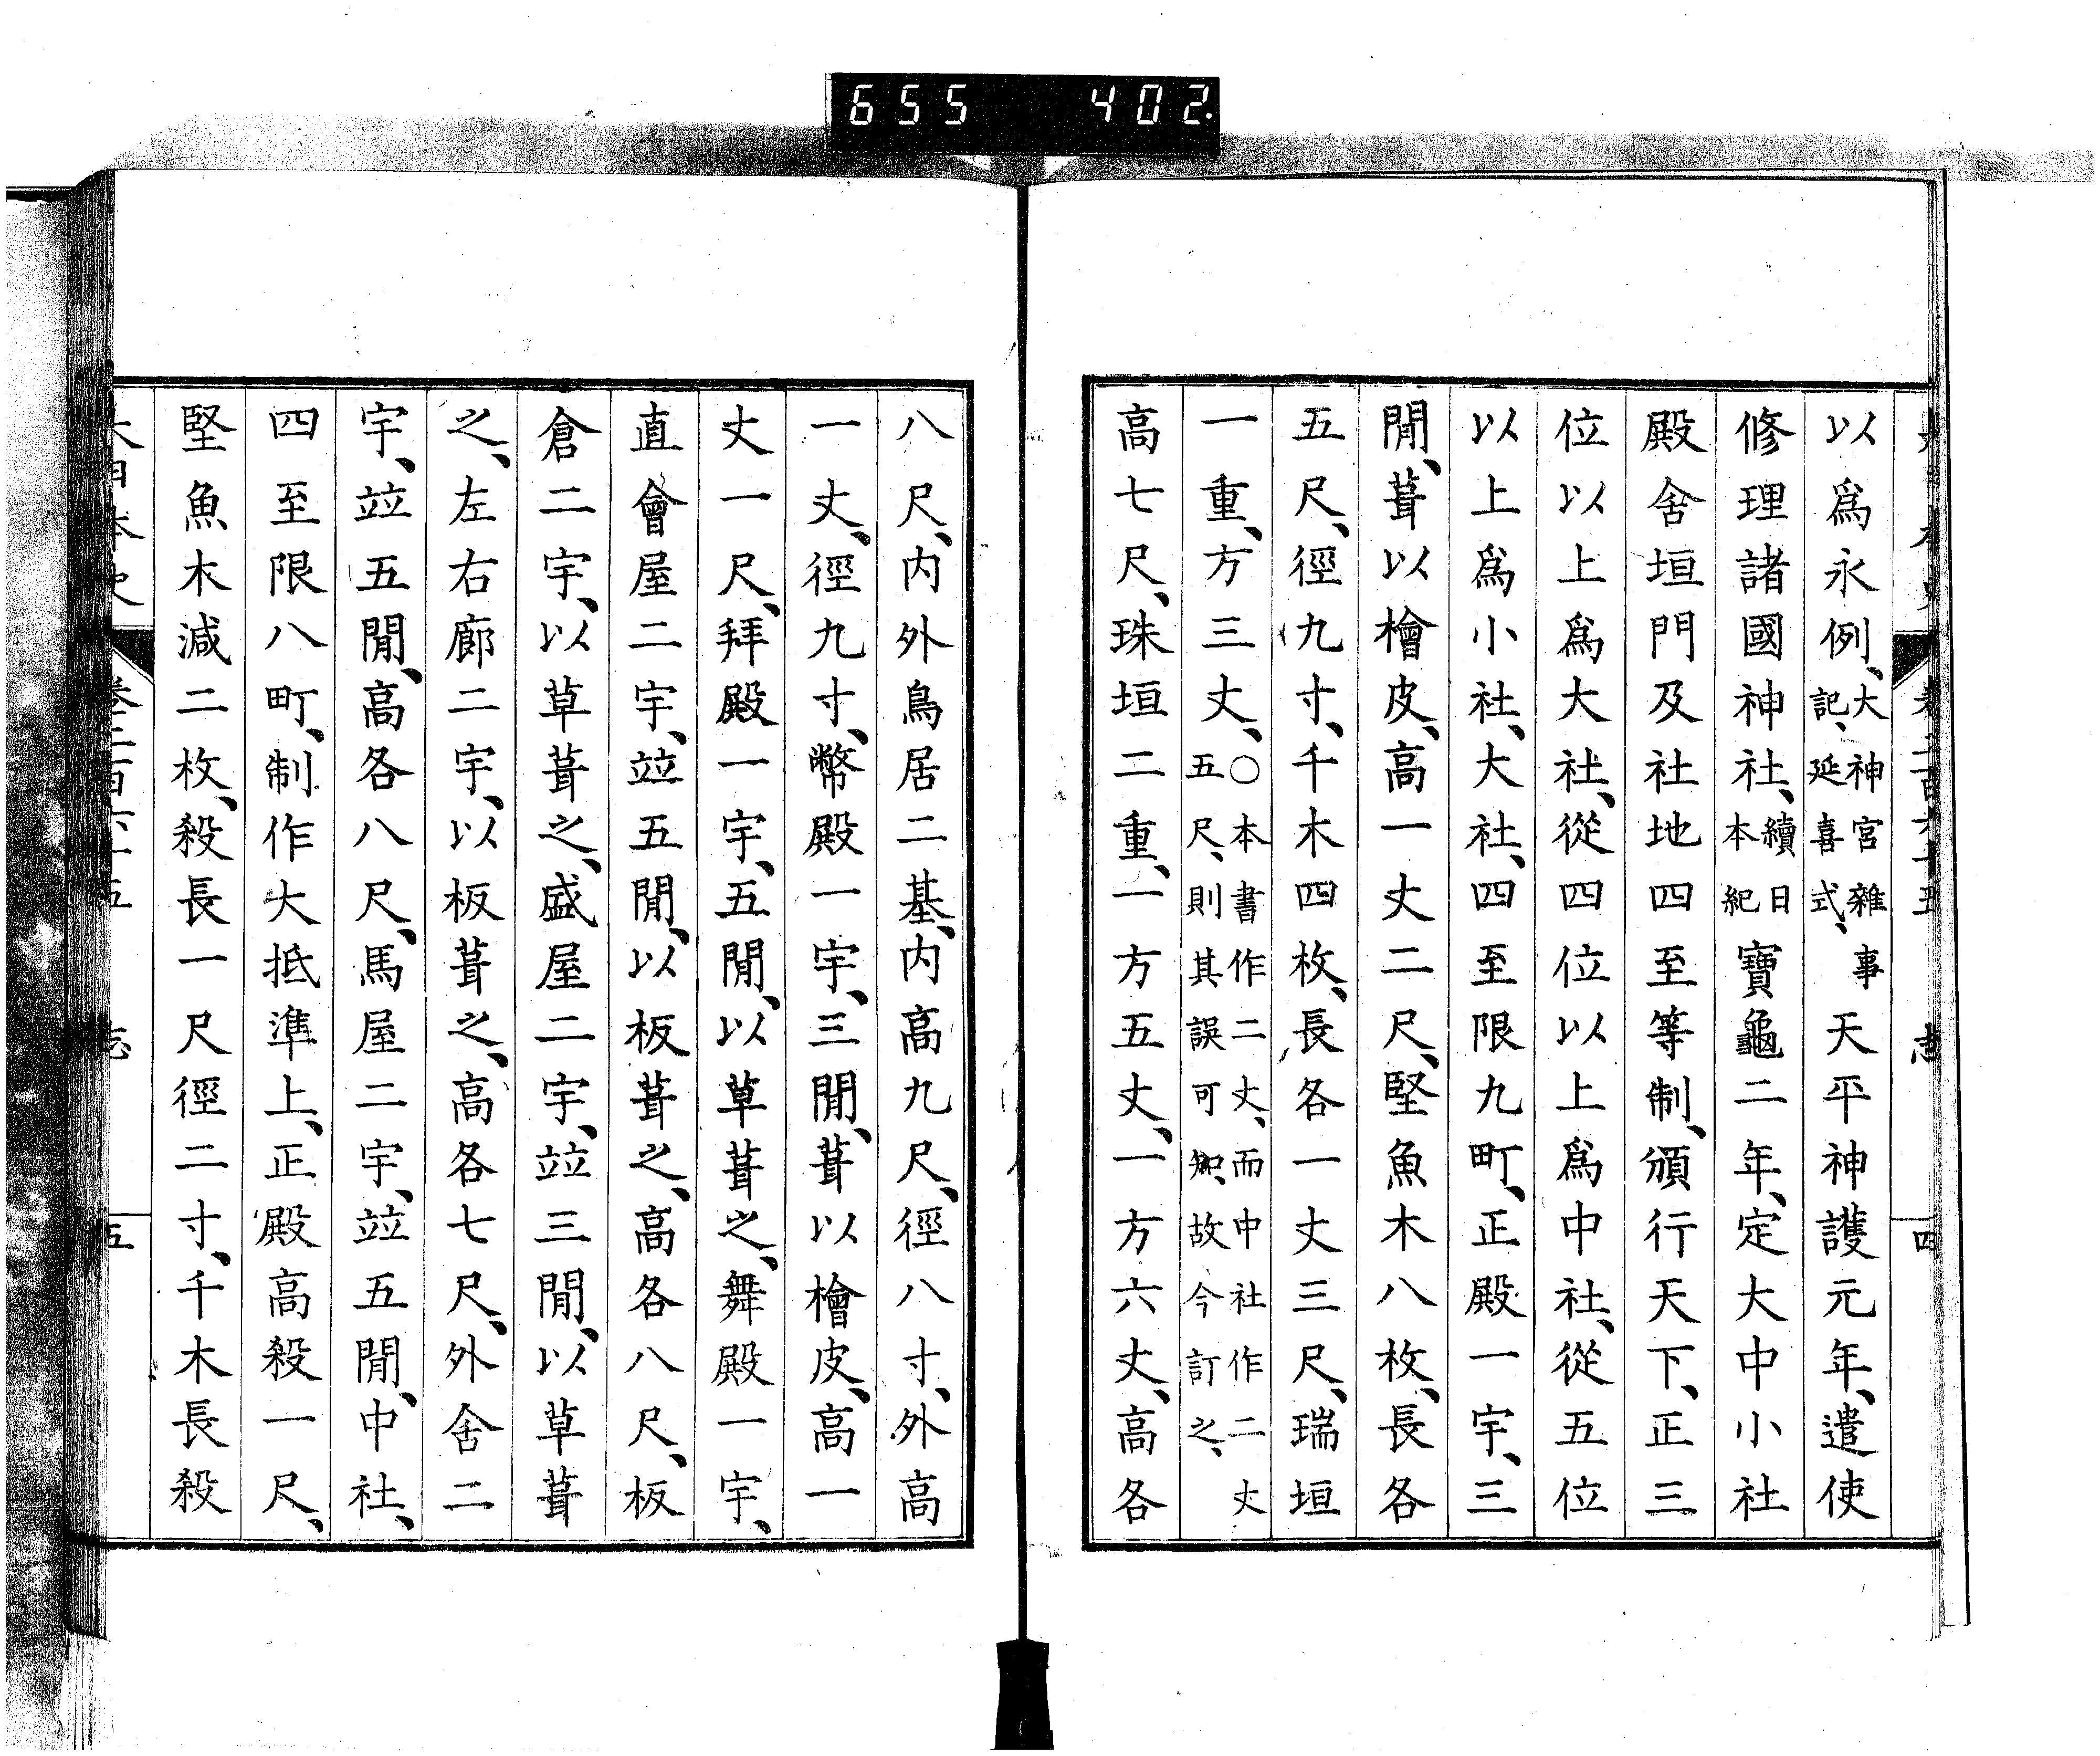 655 402.
大日本史 卷二百六十五 志 四
以爲永例、大神宮雜事記、延喜式、天平神護元年、遣使
修理諸國神社、續日本紀寶龜二年、定大中小社
殿舍垣門及社地四至等制、頒行天下、正三
位以上爲大社、從四位以上爲中社、從五位
以上爲小社、大社、四至限九町、正殿一宇、三
閒、葺以檜皮、高一丈二尺、堅魚木八枚、長各
五尺、徑九寸、千木四枚、長各一丈三尺、瑞垣
一重、方三丈、〇本書作二丈、而中社作二丈五尺、則其誤可知、故今訂之、
高七尺、珠垣二重、一方五丈、一方六丈、高各
八尺、内外鳥居二基、内高九尺、徑八寸、外高
一丈、徑九寸、幣殿一宇、三閒、葺以檜皮、高一
丈一尺、拜殿一宇、五閒、以草葺之、舞殿一宇、
直會屋二宇、竝五閒、以板葺之、高各八尺、板
倉二宇、以草葺之、盛屋二宇、竝三閒、以草葺
之、左右廊二宇、以板葺之、高各七尺、外舍二
宇、竝五閒、高各八尺、馬屋二宇、竝五閒、中社、
四至限八町、制作大抵準上、正殿高殺一尺、
堅魚木減二枚、殺長一尺徑二寸、千木長殺
大日本史 卷二百六十五 志 五